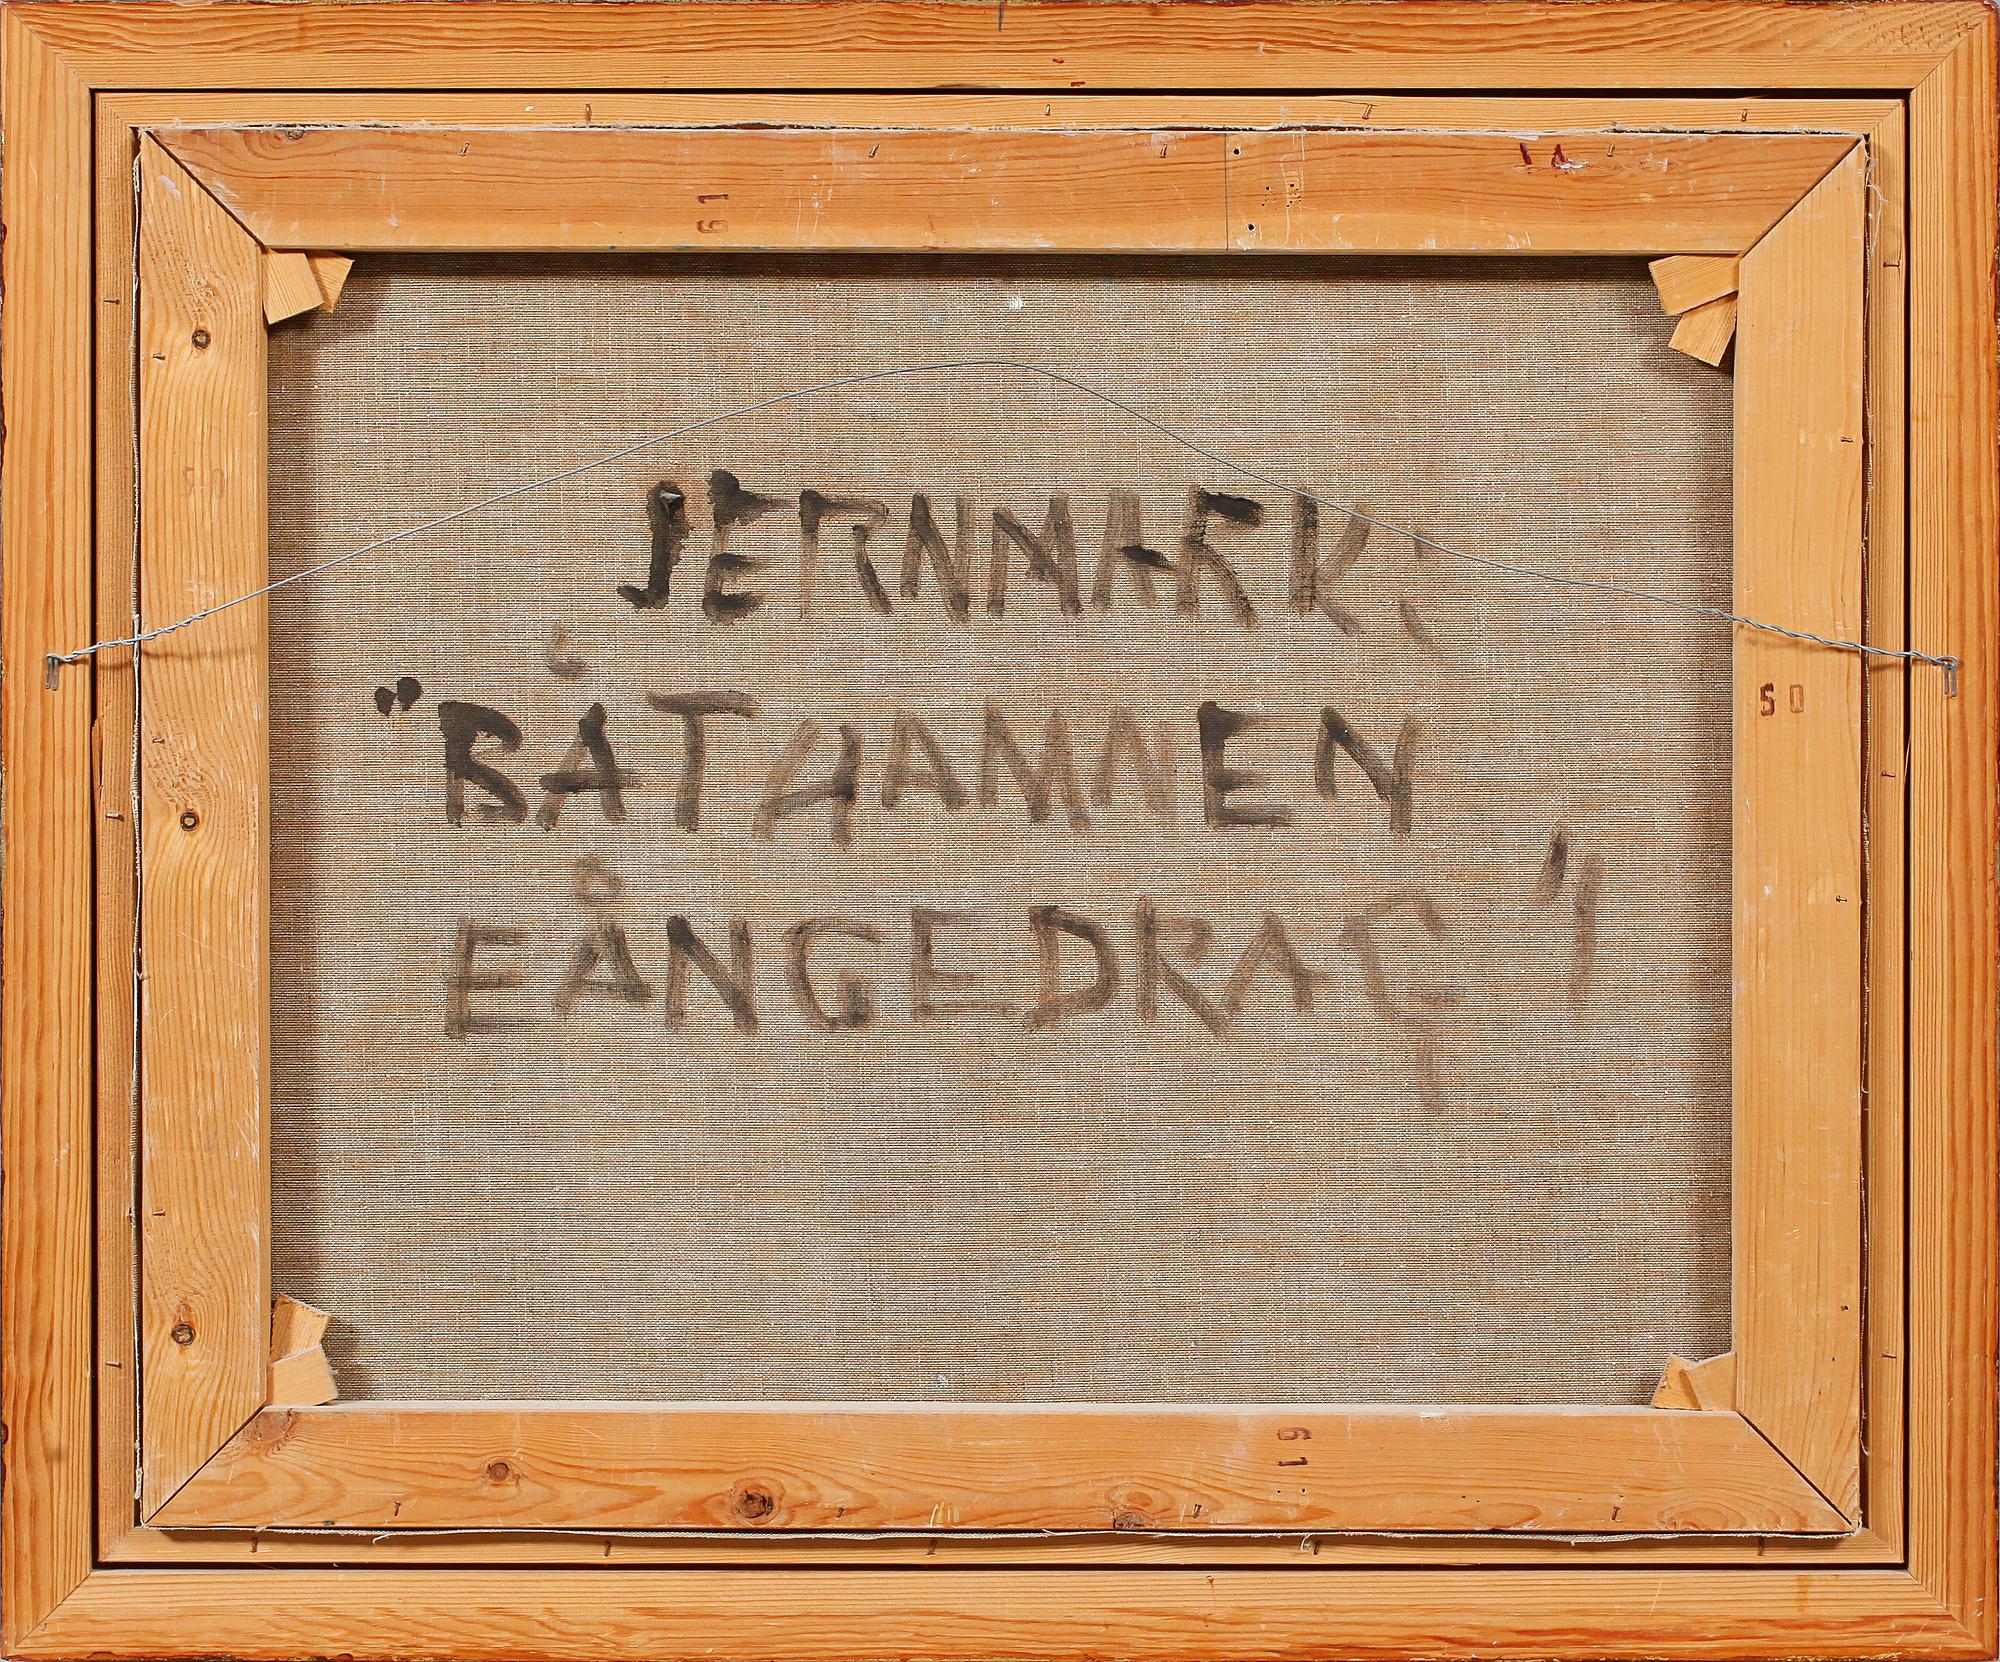 61
50
JERNMARK:
"BÅTHAMNEN
EÅNGEDRAG"
50
61